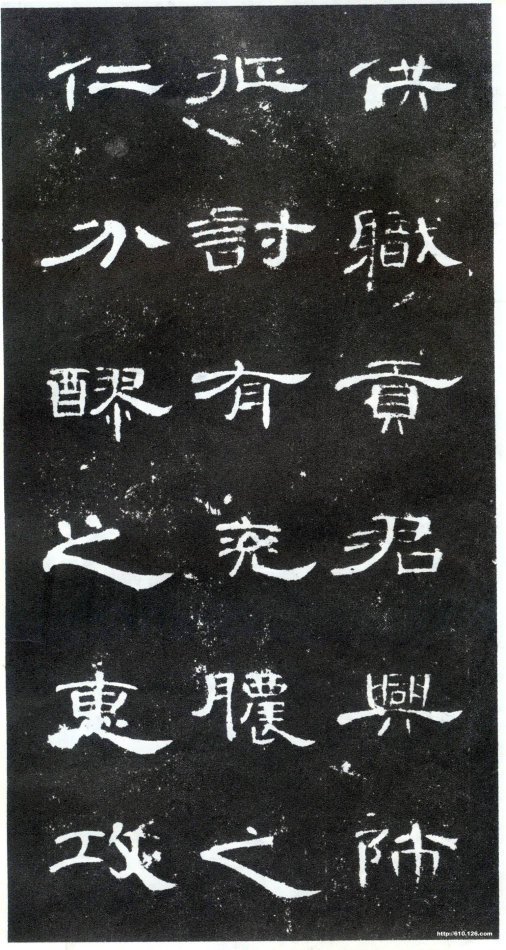 供職貢君興師
征討有兖膿之
仁分醪之惠攻
http://610.126.com